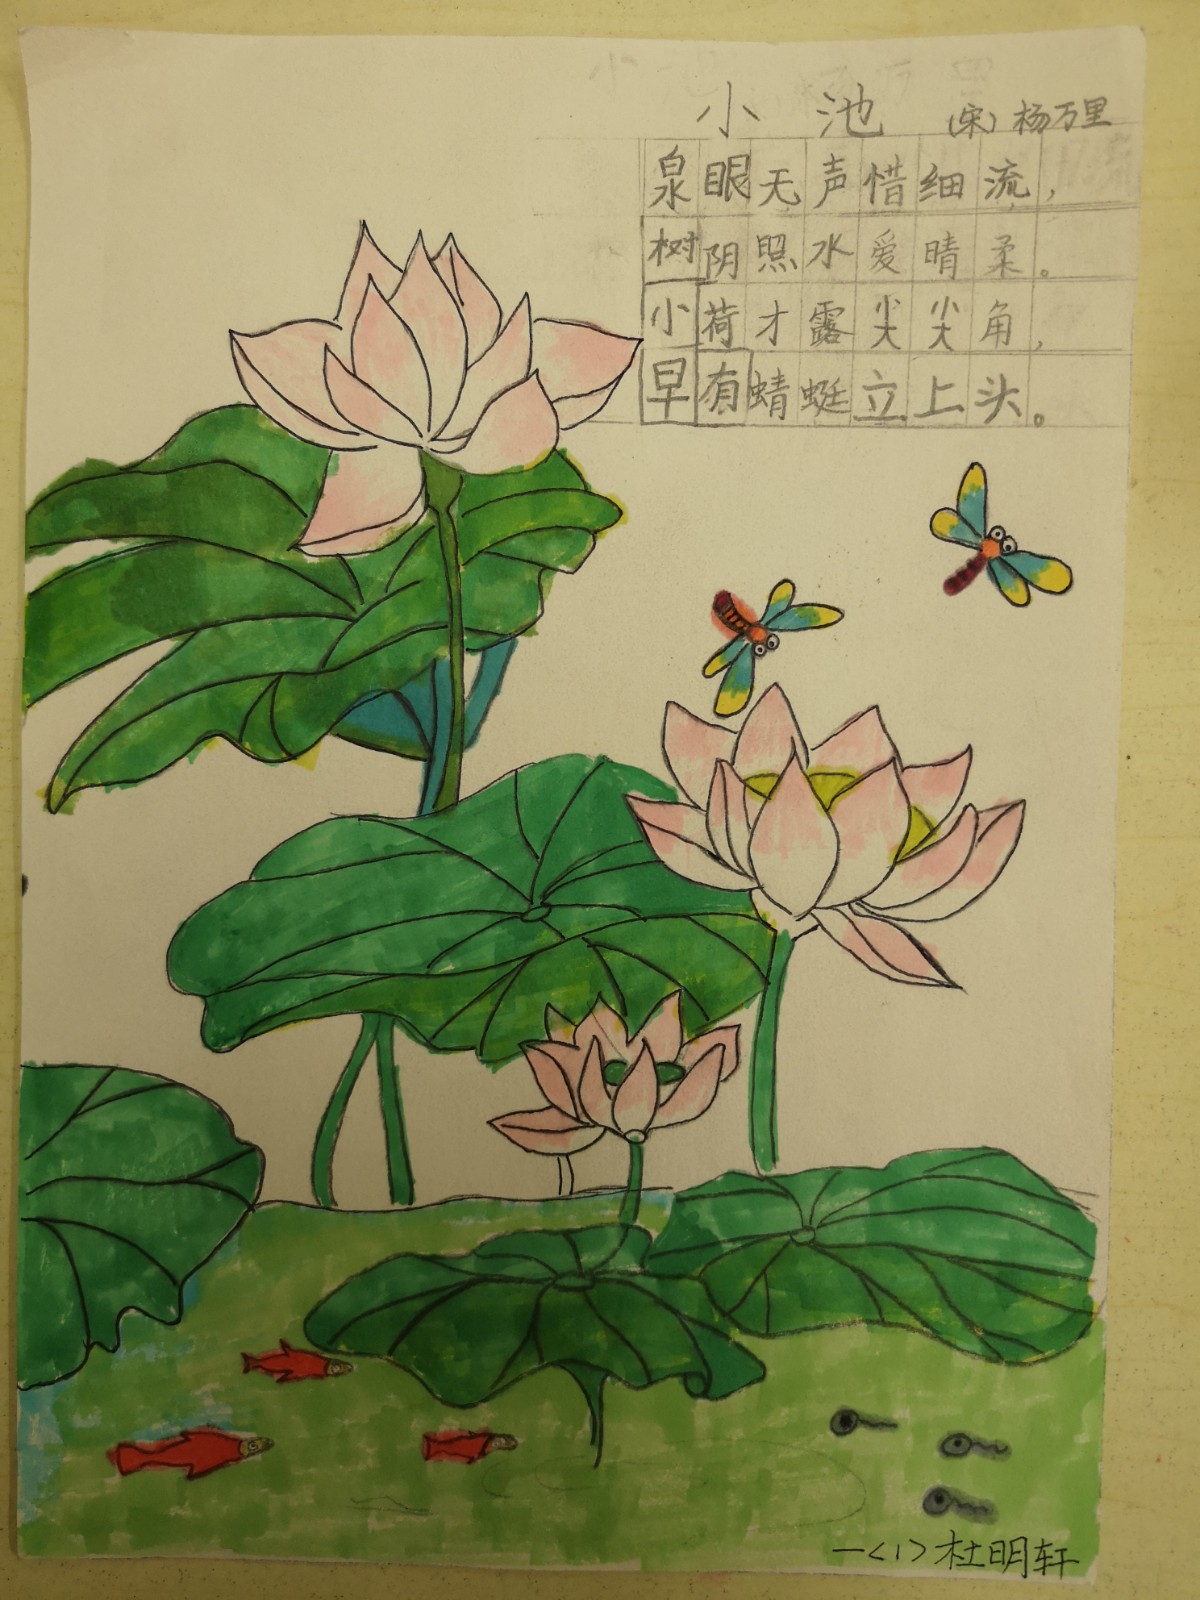 小 池 (宋) 杨万里
泉眼无声惜细流，
树阴照水爱晴柔。
小荷才露尖尖角，
早有蜻蜓立上头。
一<1>杜明轩